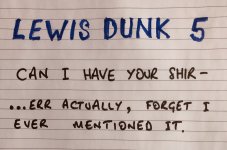 LEWIS DUNK 5
CAN I HAVE YOUR SHIR-
...ERR ACTUALLY, FORGET I
EVER MENTIONED IT.